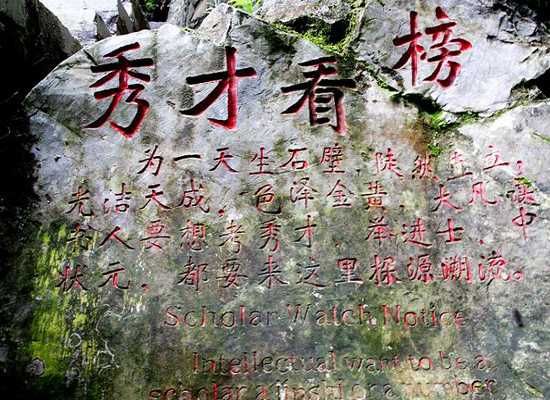 秀才看榜
为一天生石壁，陡然直立，
光洁天成，色泽金黄，大凡读
书人要想考秀才，举进士，
状元，都要来这里探源溯流。
Scholar Watch Notice
Intellectual want to be a
scholar a jinshi or a number